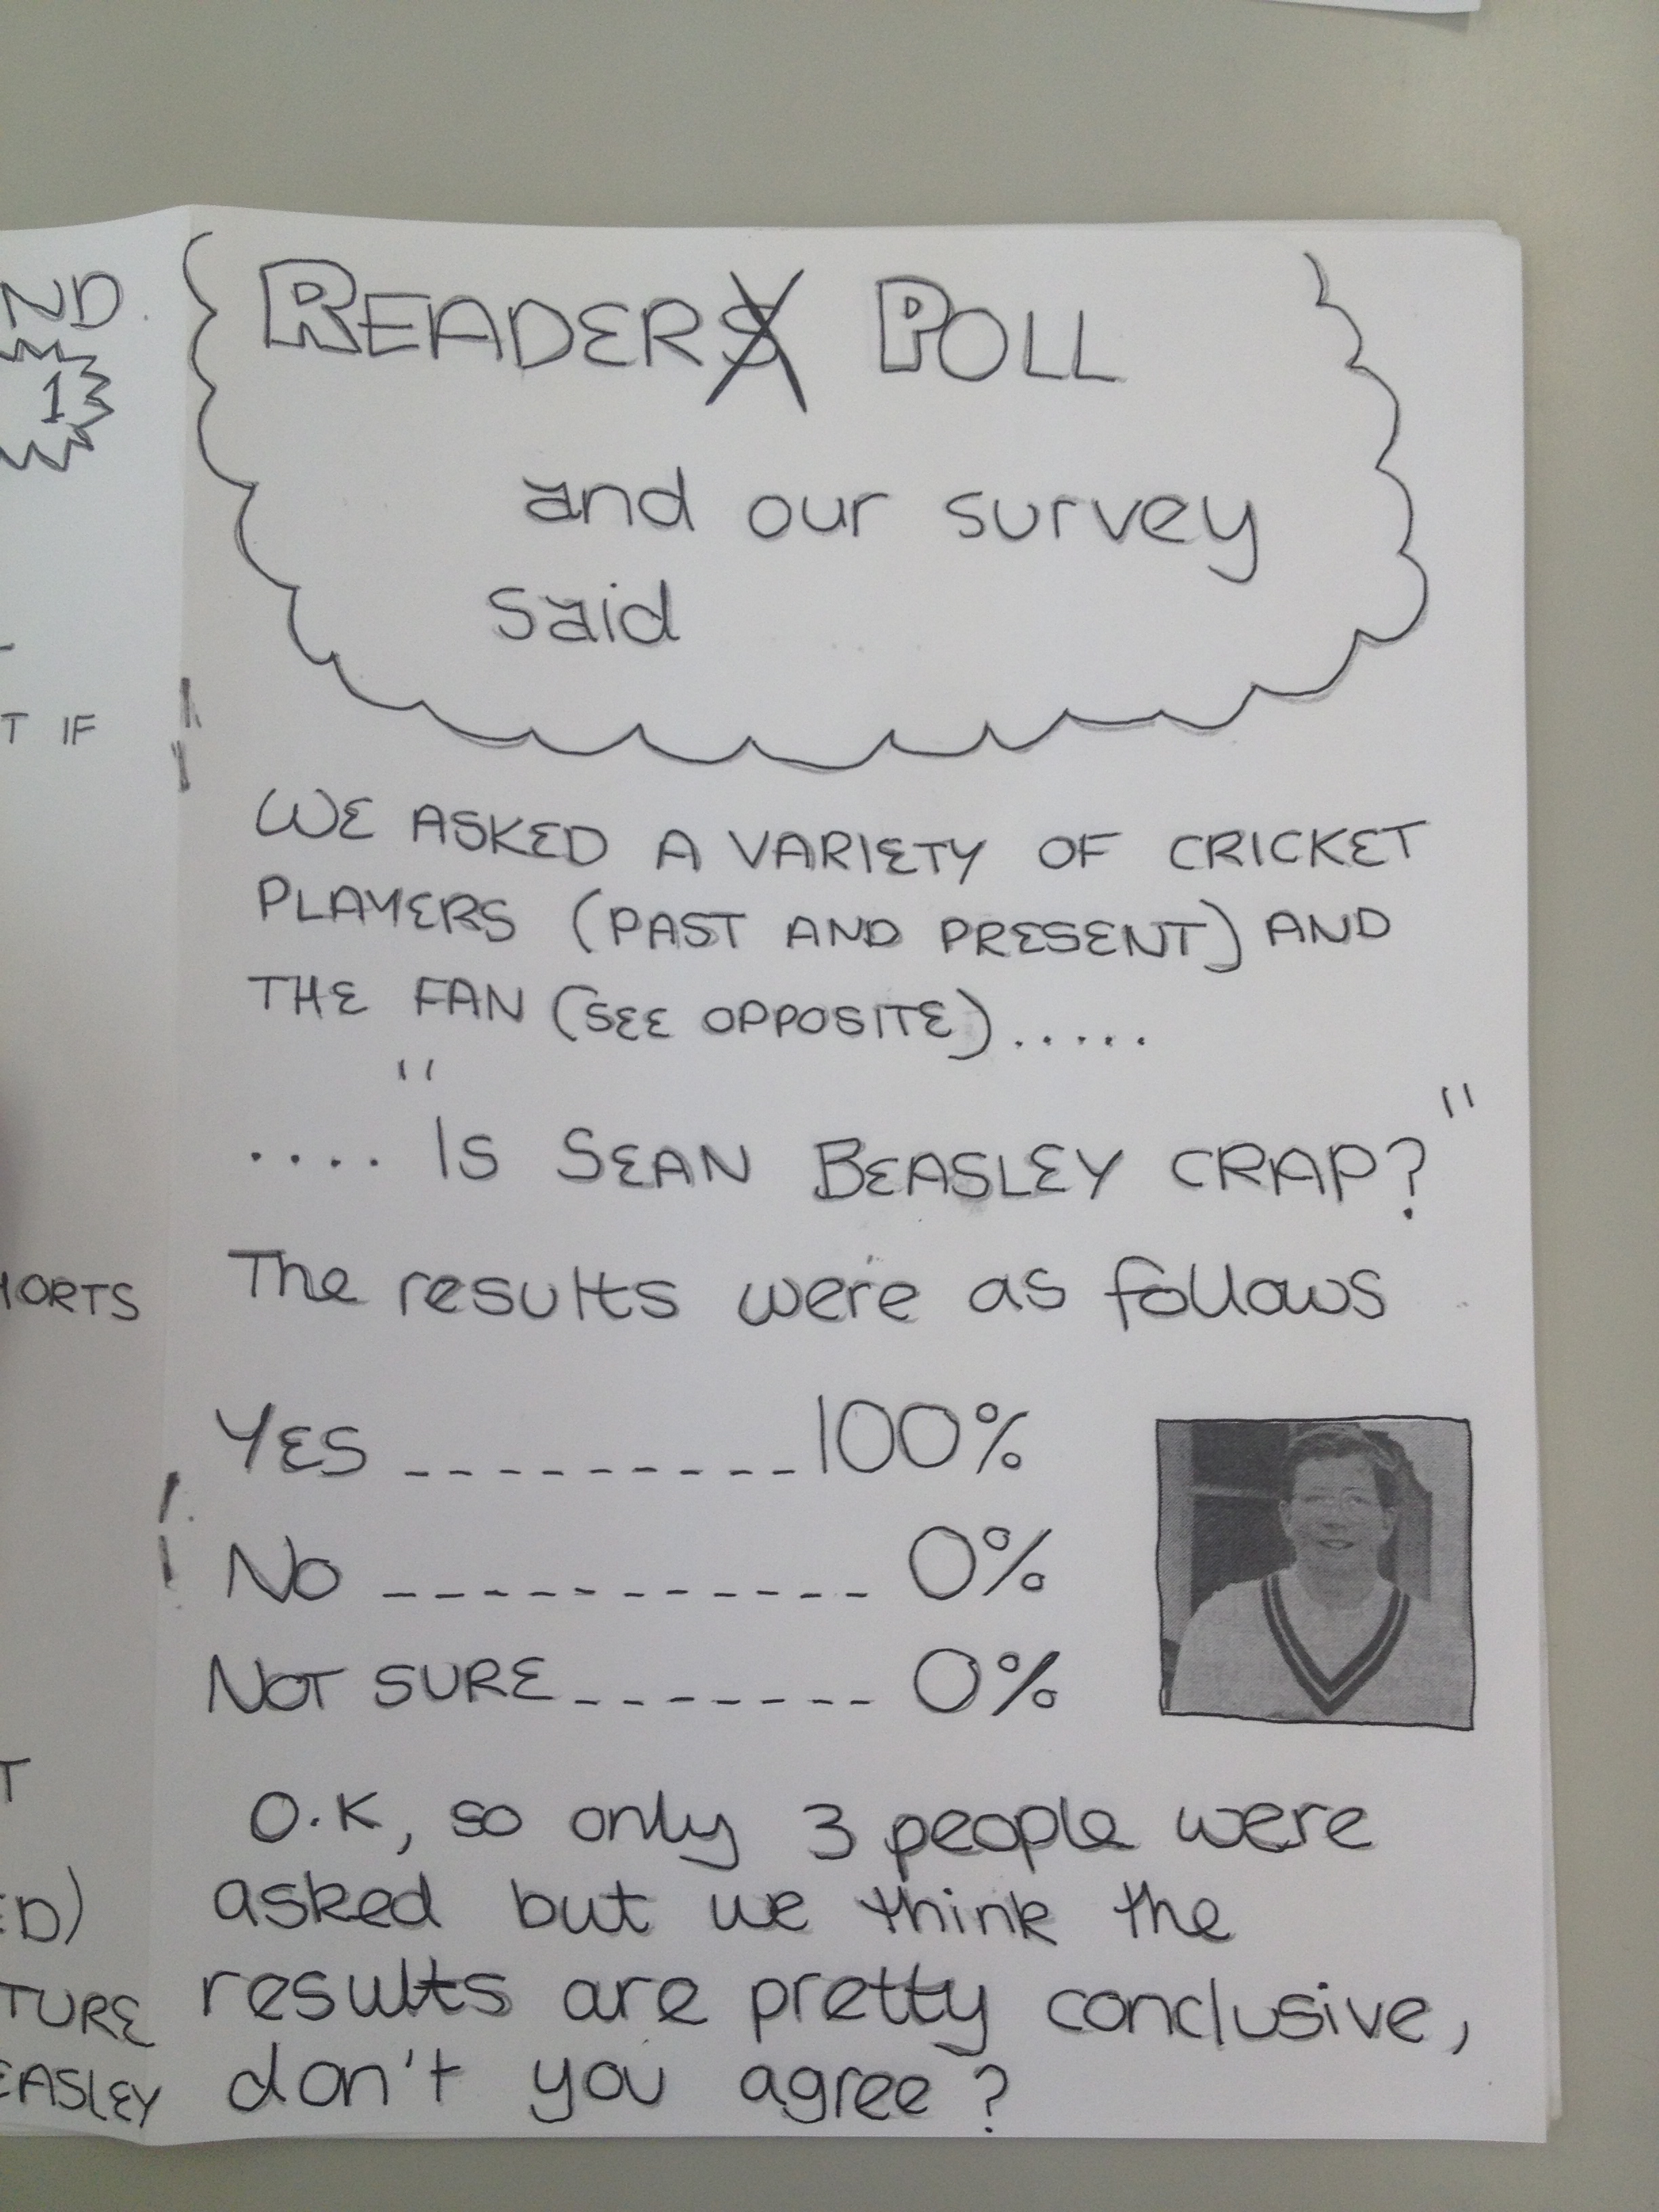 ND.
1
T IF
HORTS
T
ED)
TURE
EASLEY
READERS POLL
and our survey
said
WE ASKED A VARIETY OF CRICKET
PLAYERS (PAST AND PRESENT) AND
THE FAN (SEE OPPOSITE).....
...."IS SEAN BEASLEY CRAP?"
The results were as follows
YES __________100%
NO ____________ 0%
NOT SURE________ 0%
O.K, so only 3 people were
asked but we think the
results are pretty conclusive,
don't you agree?